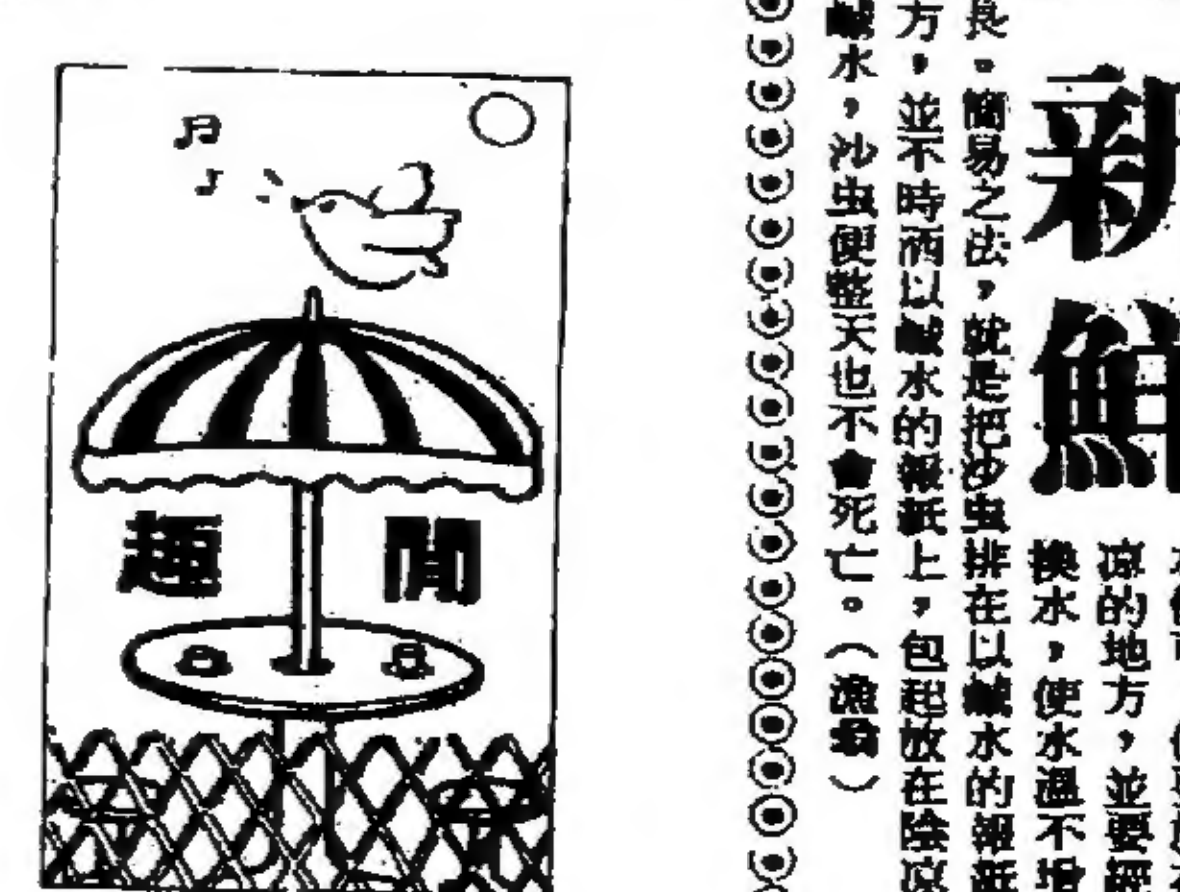 新鮮
凉的地方，並要經
換水，使水溫不增
長。簡易之法，就是把沙虫排在以鹹水的報紙
方，並不時洒以鹹水的報紙上，包起放在陰凉
鹹水，沙虫便整天也不會死亡。（漁翁）
閒趣